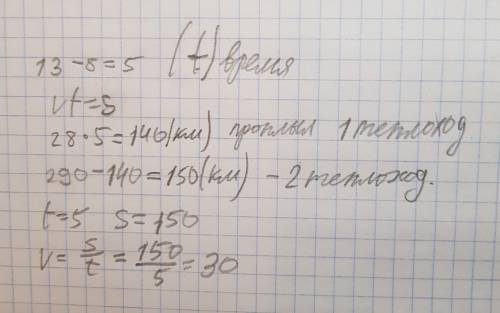 13-8=5 (t) время
vt=S
28·5=140(км) проплыл 1 теплоход
290-140=150(км) - 2 теплоход.
t=5 S=150
v= s/t = 150/5 = 30